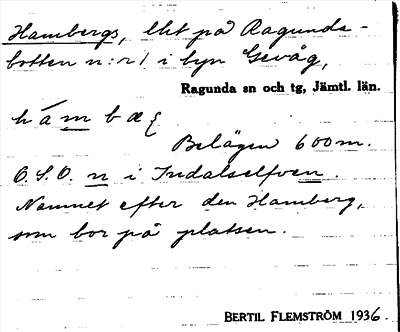 Hambergs, lht på Ragunda-
botten n:r 1 i byn Gevåg,
Ragunda sn och tg, Jämtl. län.
hámbæ
Belägen 600 m.
O.S.O. n i Indalselfven.
Namnet efter den Hamberg,
som bor på platsen.
BERTIL FLEMSTRÖM 1936.